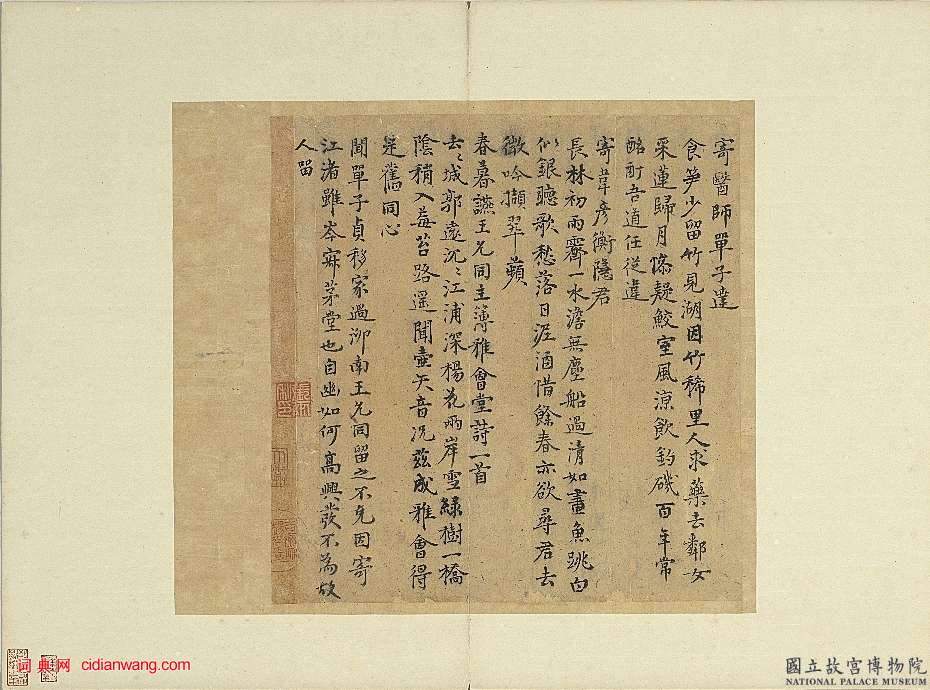 寄醫師單子達
食笋少留竹見湖因竹稀里人求藥去鄰女
采蓮歸月滌疑鮫室風涼飲釣磯百年常
酩酊吾道任從違
寄韋彦衡隱君
長林初雨霽一水澹無塵船過清如畫魚跳白
似銀聽歌愁落日泥酒惜餘春亦欲尋君去
微吟擷翠蘋
春暮讌王允同主簿雅會堂詩一首
去〻城郭遠沉〻江浦深楊花兩岸雪綠樹一橋
陰稍入莓苔路遥聞壺矢音况兹成雅會得
是舊同心
聞單子貞移家過泖南王允同留之不克因寄
江渚雖岑寂茅堂也自幽如何高興發不為故
人留
词典网 cidianwang.com
國立故宮博物院
NATIONAL PALACE MUSEUM